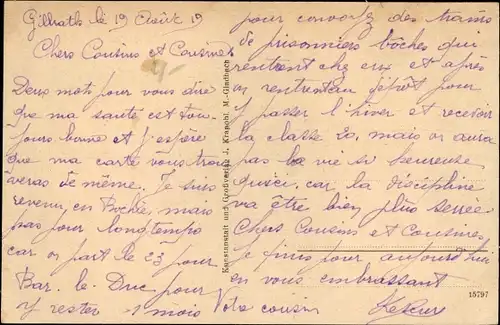 Gilhrath le 19 Août 19
Chers Cousins et Cousines
Deux mots pour vous dire
que ma santé est tou-
jours bonne et j'espère
que ma carte vous trou
veras de même. Je suis
revenu en Bochie, mais
pas pour longtemps
car on part le 23 pour
Bar-le-Duc pour
y rester 1 mois
pour convoyer des trains
de prisonniers bôches qui
rentrent chez eux et après
on rentre au dépôt pour
y passer l'hiver et recevoir
la classe 20, mais on aura
pas la vie si heureuse
qu'ici, car la discipline
va être bien plus serrée.
Chers Cousins et Cousines
je finis pour aujourd'hui
en vous embrassant
Votre cousin
Kunstanstalt und Großverlag J. Krapohl, M.-Gladbach
15797